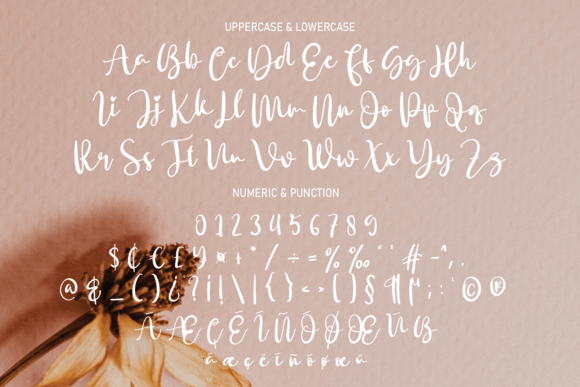 UPPERCASE & LOWERCASE
Aa Bb Cc Dd Ee Ff Gg Hh
Ii Jj Kk Ll Mm Nn Oo Pp Qq
Rr Ss Tt Uu Vv Ww Xx Yy Zz
NUMERIC & PUNCTION
0 1 2 3 4 5 6 7 8 9
+ * / ÷ = % ‰ ' " # - ^ , .
@ & _ ( ) ¿ ? ¡ ! | \ { } < > ( ) § ¶ µ ; : © ®
Ã Æ Ç É Í Ñ Ó Ø Œ Ú ß
æ ç é í ñ ó ø œ ú